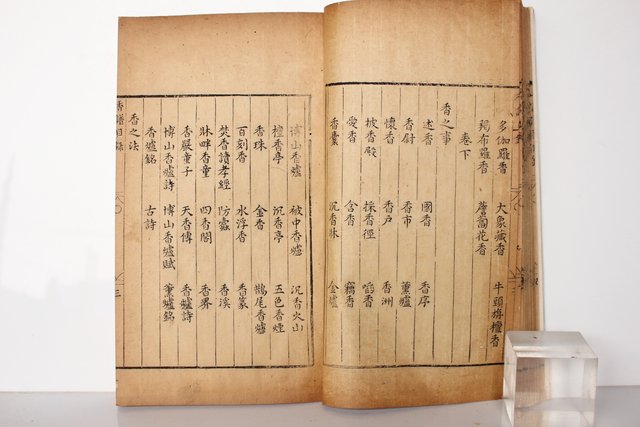 多伽羅香 大象藏香 牛頭旃檀香
羯布羅香 薝蔔花香
卷下
香之事
述香 國香 香序
香尉 香市 薰爐
懷香 香戶 香洲
披香殿 採香徑 啗香
愛香 含香 竊香
香囊 沉香牀 金爐
博山香爐 被中香爐 沉香火山
檀香亭 沉香亭 五色香煙
香珠 金香 鵲尾香爐
百刻香 水浮香 香篆
焚香讀孝經 防蠹 香溪
牀畔香童 四香閣 香界
香嚴童子 天香傳 香爐詩
博山香爐詩 博山香爐賦 薰爐銘
香爐銘 古詩
香之法
香譜目錄 三